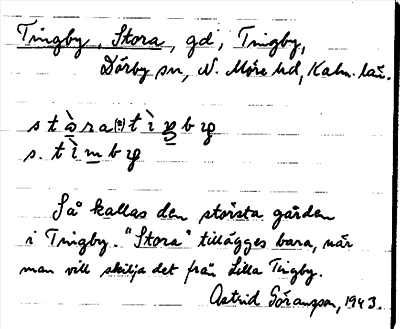 Tingby, Stora, gd, Tingby,
Dörby sn, N. Möre hd, Kalm. län.
Så kallas den största gården
i Tingby. "Stora" tillägges bara, när
man vill skilja det från Lilla Tingby.
Astrid Göransson, 1943.